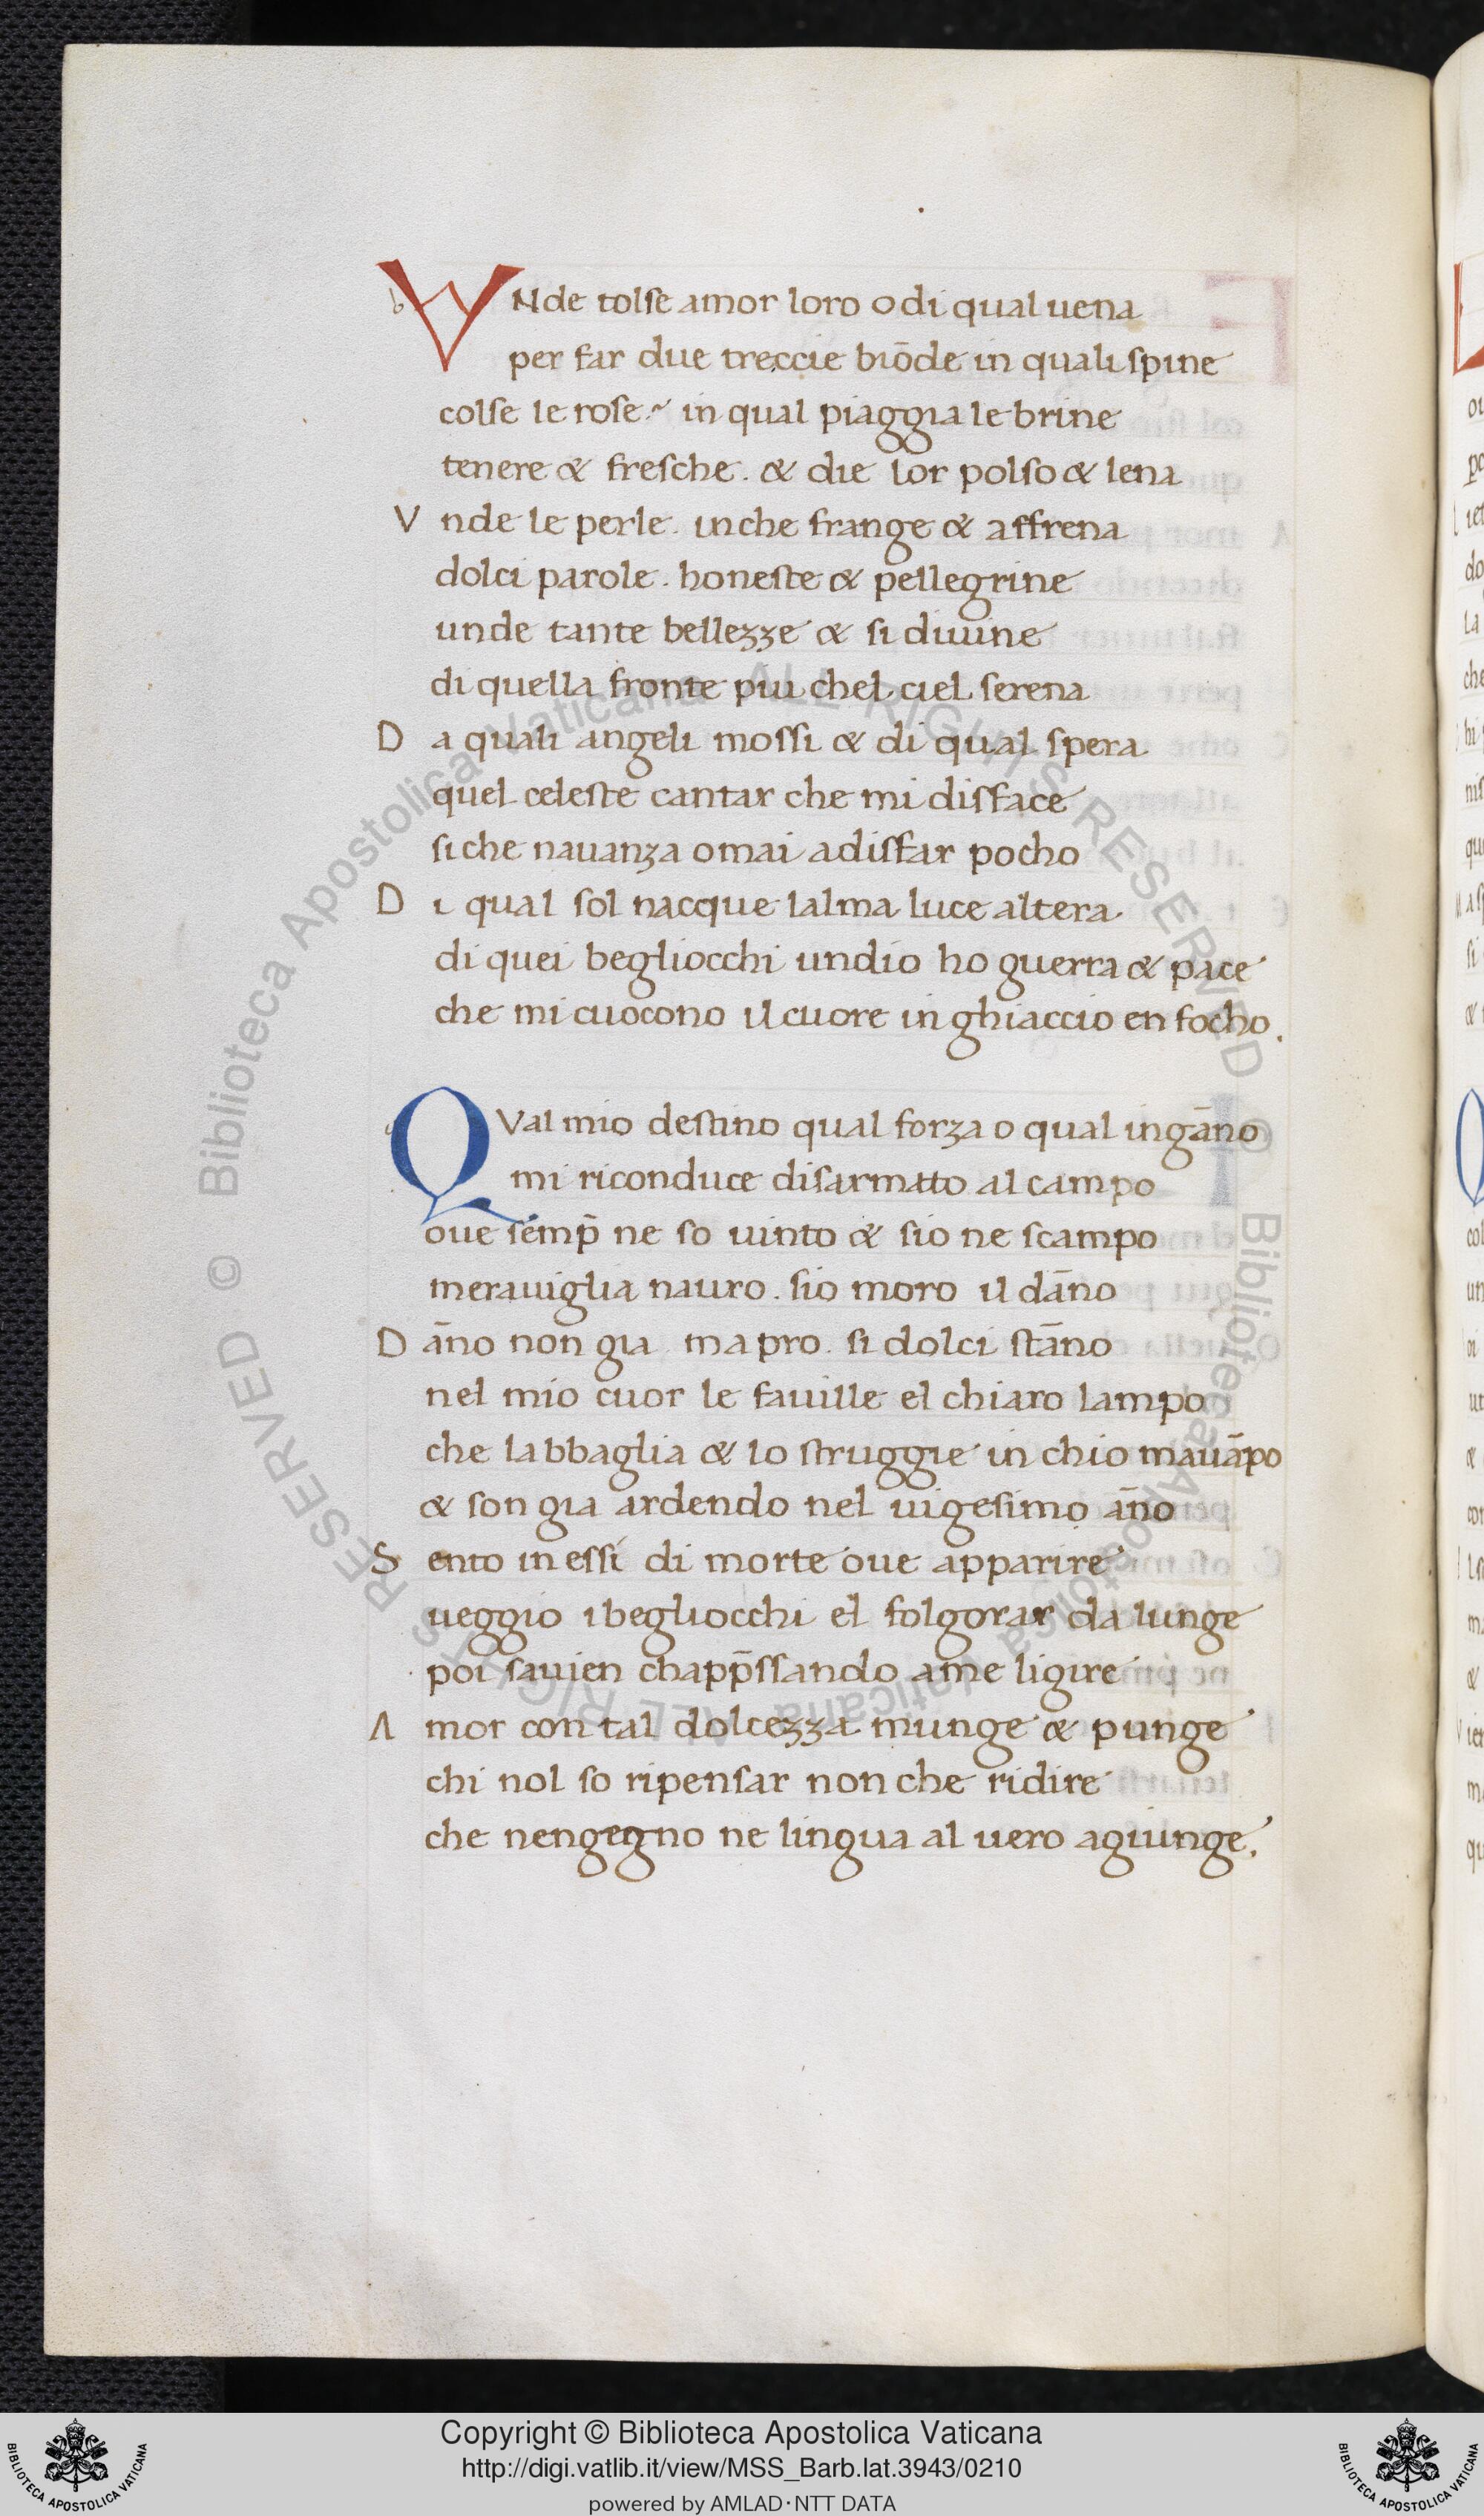 VNde tolse amor loro o di qual uena
per far due treccie biōde in quali spine
colse le rose. in qual piaggia le brine
tenere & fresche. & die lor polso & lena
Vnde le perle. in che frange & affrena
dolci parole. honeste & pellegrine
unde tante bellezze & si diuine
di quella fronte piu chel ciel serena
Da quali angeli mossi & di qual spera
quel celeste cantar che mi disface
si che nauanza omai a disfar pocho
Di qual sol nacque lalma luce altera
di quei begliocchi undio ho guerra & pace
che mi cuocono il cuore in ghiaccio en focho.
QVal mio destino qual forza o qual ingāno
mi riconduce disarmato al campo
oue semp̄ ne so uinto & sio ne scampo
merauiglia nauro. sio moro il dāno
Dāno non gia. ma pro. si dolci stāno
nel mio cuor le fauille el chiaro lampo
che labbaglia & lo struggie in chio mauāpo
& son gia ardendo nel uigesimo āno
Sento in essi di morte oue apparire
ueggio i begliocchi el folgorar da lunge
poi sauien chapp̄ssando a me ligire
Amor con tal dolcezza munge & punge
chi nol so ripensar non che ridire
che nengegno ne lingua al uero agiunge.
Biblioteca Apostolica Vaticana ALL RIGHTS RESERVED ©
Biblioteca Apostolica Vaticana ALL RIGHTS RESERVED ©
Copyright © Biblioteca Apostolica Vaticana
http://digi.vatlib.it/view/MSS_Barb.lat.3943/0210
powered by AMLAD・NTT DATA
BIBLIOTECA APOSTOLICA VATICANA
BIBLIOTECA APOSTOLICA VATICANA